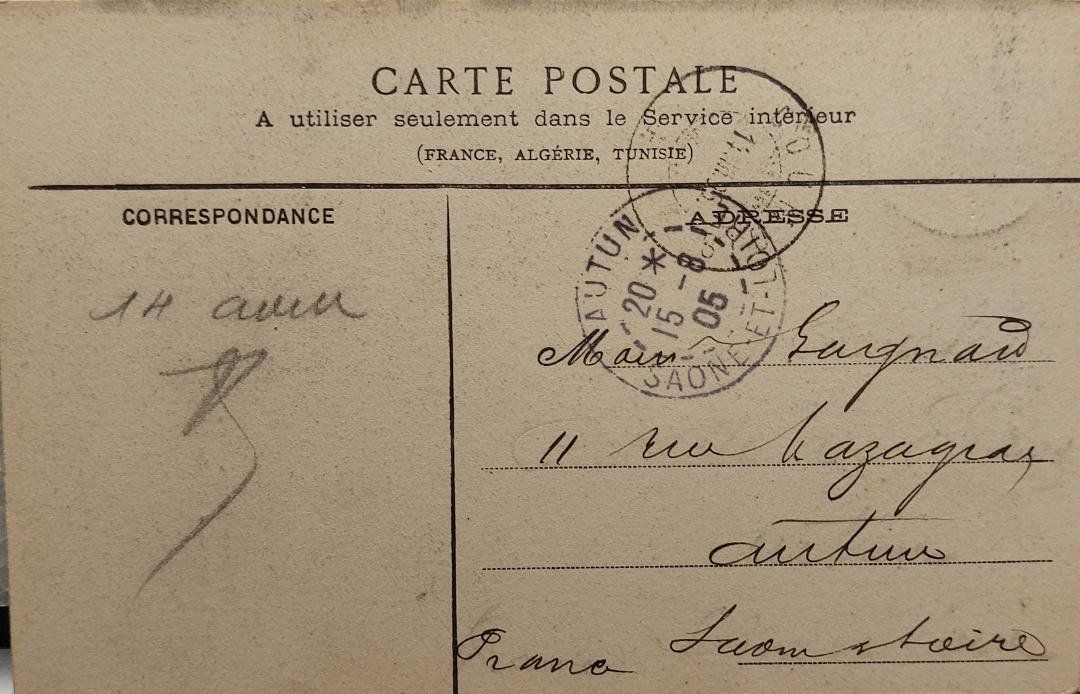 CARTE POSTALE
A utiliser seulement dans le Service intérieur
(FRANCE, ALGÉRIE, TUNISIE)
CORRESPONDANCE
ADRESSE
AUTUN
20 *
15 - 8
05
SAONE-ET-LOIRE
14 avril
Guignard
11 rue Mazagran
autun
Saone et Loire
France